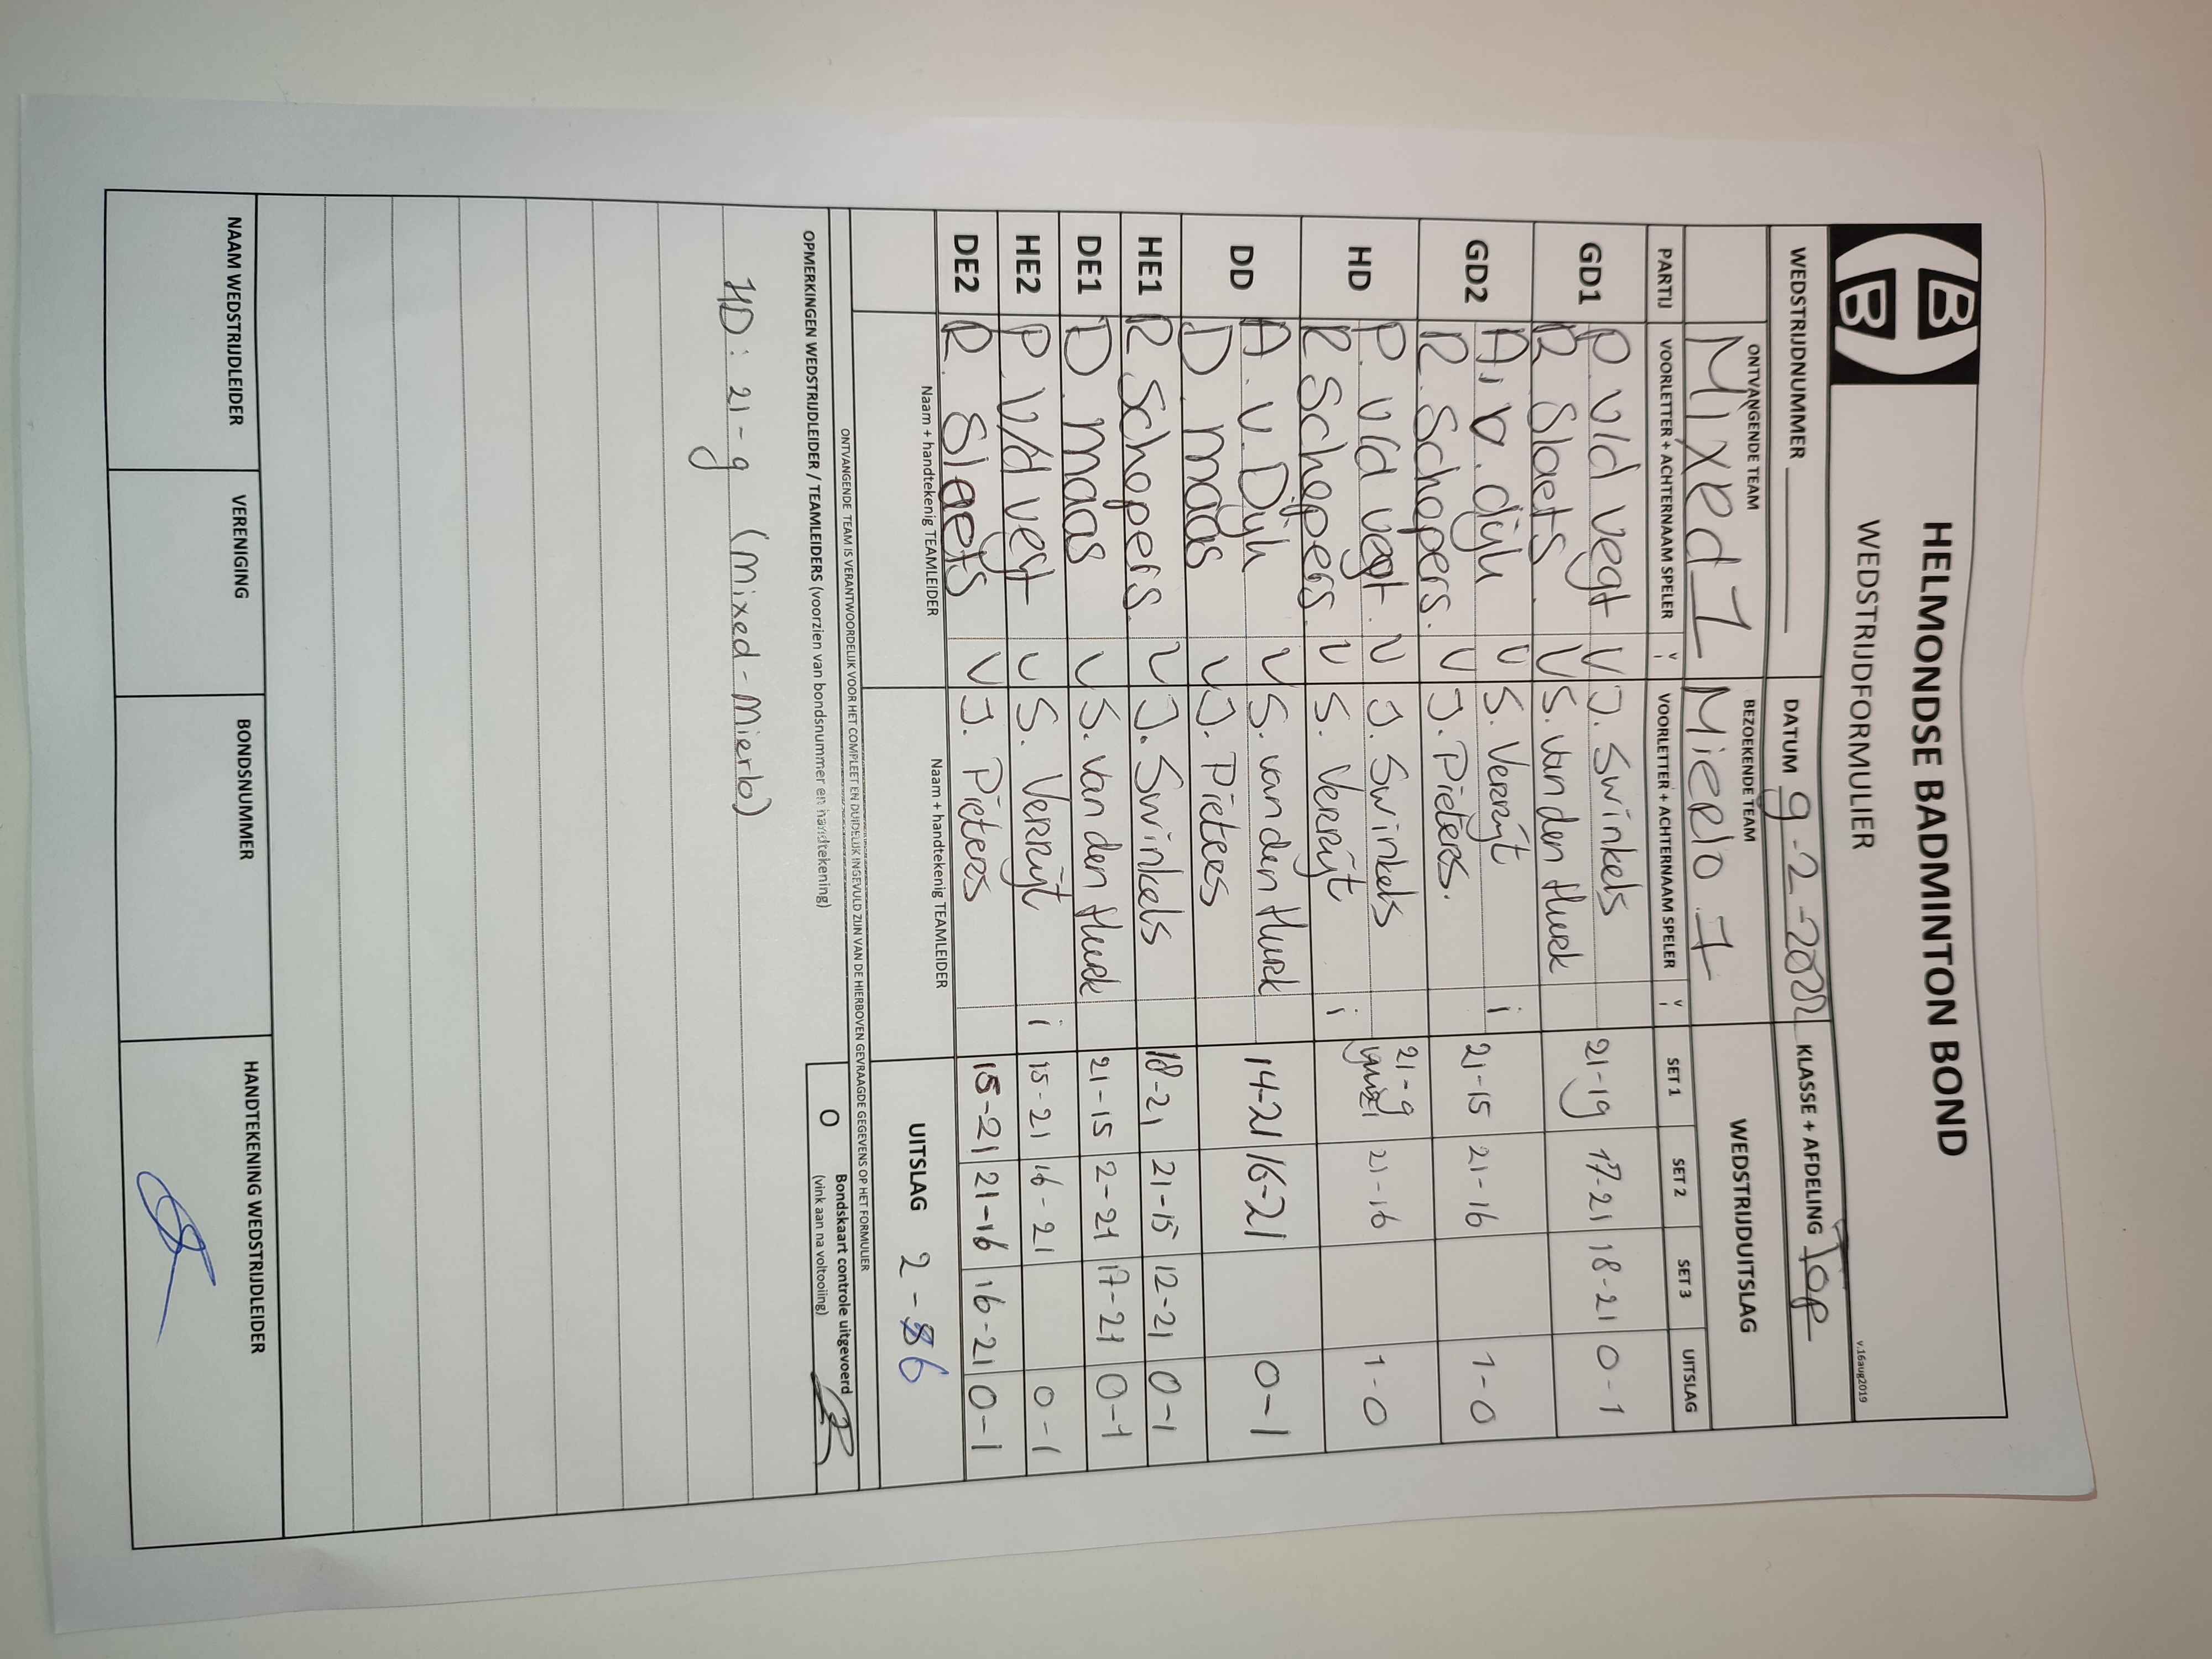 HELMONDSE BADMINTON BOND
WEDSTRIJDFORMULIER
v.16aug2019
WEDSTRIJDNUMMER DATUM 9-2-2022 KLASSE + AFDELING Top
ONTVANGENDE TEAM BEZOEKENDE TEAM WEDSTRIJDUITSLAG
Mixed 1 Mierlo 1
PARTIJ VOORLETTER + ACHTERNAAM SPELER V I VOORLETTER + ACHTERNAAM SPELER V I SET 1 SET 2 SET 3 UITSLAG
GD1 P. v/d vegt V J. Swinkels 21-19 17-21 18-21 0-1
R Slaets. V S. van den Hurk
GD2 A. v. dijk V S. Verrijt i 21-15 21-16 1-0
R. Schepers. V J. Pieters.
HD P. v/d vegt. V J. Swinkels 21-9 21-16 1-0
R Schepers. V S. Verrijt i
DD A. v. Dijk V S. van den Hurk 14-21 16-21 0-1
D maas V J. Pieters
HE1 R Schepers. V J. Swinkels 18-21 21-15 12-21 0-1
DE1 D. maas V S. van den Hurk 21-15 2-21 17-21 0-1
HE2 P v/d vegt V S. Verrijt i 15-21 16-21 0-1
DE2 R. Slaets V J. Pieters 15-21 21-16 16-21 0-1
Naam + handtekenig TEAMLEIDER Naam + handtekenig TEAMLEIDER UITSLAG 2 - 6
ONTVANGENDE TEAM IS VERANTWOORDELIJK VOOR HET COMPLEET EN DUIDELIJK INGEVULD ZIJN VAN DE HIERBOVEN GEVRAAGDE GEGEVENS OP HET FORMULIER
OPMERKINGEN WEDSTRIJDLEIDER / TEAMLEIDERS (voorzien van bondsnummer en handtekening) O Bondskaart controle uitgevoerd
(vink aan na voltooiing)
HD: 21-9 (mixed - Mierlo)
NAAM WEDSTRIJDLEIDER VERENIGING BONDSNUMMER HANDTEKENING WEDSTRIJDLEIDER